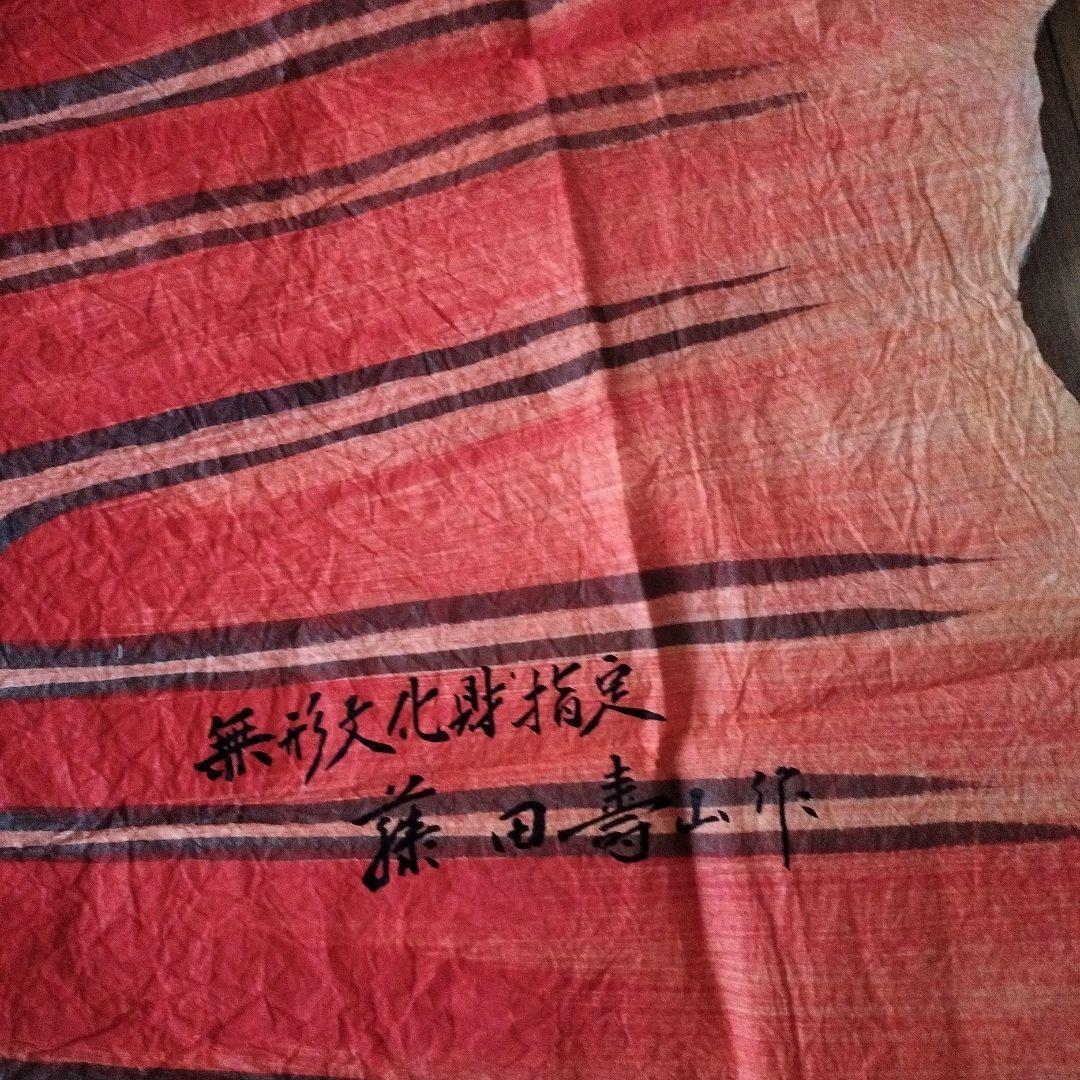 無形文化財指定
藤田壽山作